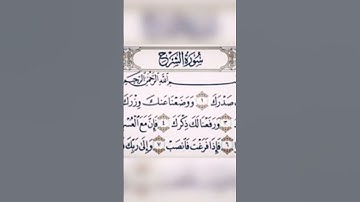 سُورَةُ الشَّرْحِ
ـمِ اللَّهِ الرَّحْمَٰنِ الرَّحِيمِ
صَدْرَكَ ١ وَوَضَعْنَا عَنكَ وِزْرَكَ
وَرَفَعْنَا لَكَ ذِكْرَكَ ٤ فَإِنَّ مَعَ الْعُسْـ
٦ فَإِذَا فَرَغْتَ فَانصَبْ ٧ وَإِلَىٰ رَبِّكَ فَـ